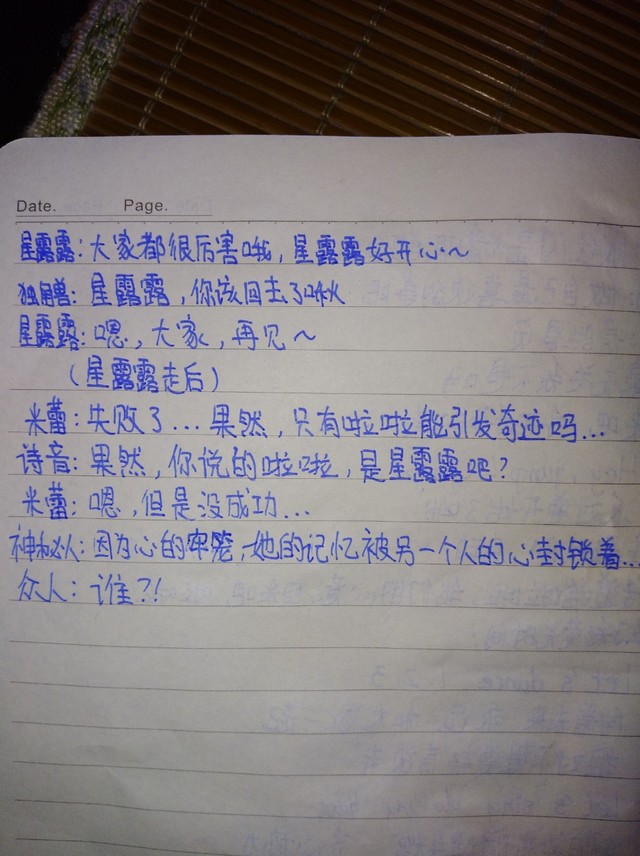 Date. Page.
星露露：大家都很厉害哦，星露露好开心～
独角兽：星露露，你该回去了啾
星露露：嗯，大家，再见～
（星露露走后）
米蕾：失败了...果然，只有啦啦能引发奇迹吗...
诗音：果然，你说的啦啦，是星露露吧？
米蕾：嗯，但是没成功...
神秘人：因为心的牢笼，她的记忆被另一个人的心封锁着...
众人：谁？！